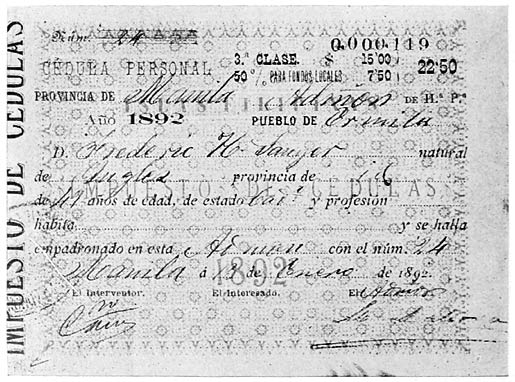 Núm. 24
0.000.119
CÉDULA PERSONAL
3.ª CLASE. $ 15'00
50 % PARA FONDOS LOCALES 7'50
22'50
PROVINCIA DE Manila Admón DE H.ª P.ª
Año 1892 PUEBLO DE Ermita
D. Frederic H. Sawyer natural
de Inglés provincia de id
IMPUESTO DE CEDULAS
de años de edad, de estado y profesión
habita y se halla
empadronado en esta Admon con el núm. 24
Manila á de Enero de 1892.
1892
El Interventor. El Interesado. El
IMPUESTO DE CEDULAS